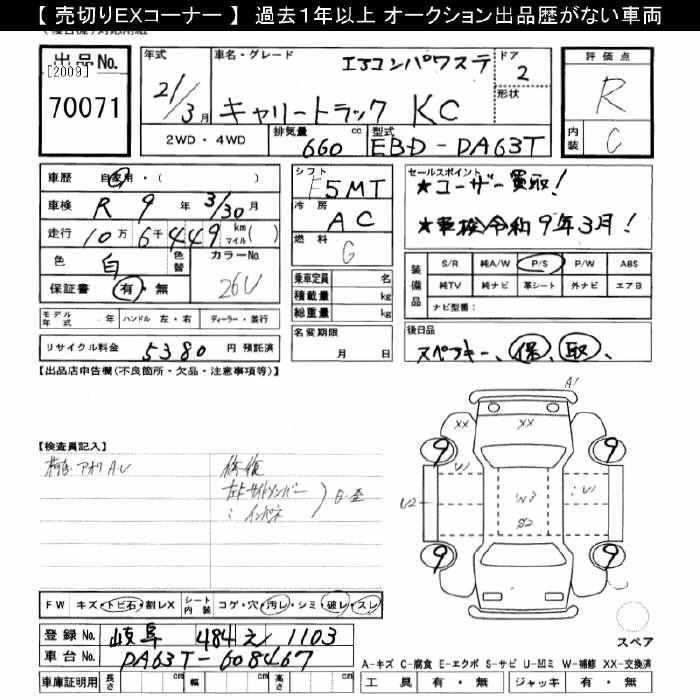 【 売切りEXコーナー 】 過去1年以上 オークション出品歴がない車両
出品No. 年式 車名・グレード エアコンパワステ ドア 評価点
[2009]
70071 21/3月 キャリートラック KC 2 形状 R
2WD・4WD 排気量 660 cc 型式 EBD-DA63T 内装 C
車歴 自家用・( ) シフト F5MT セールスポイント
車検 R 9 年 3/30 月 冷房 AC ★ユーザー買取!
走行 10 万 6 千 449 km マイル ( ) 燃料 G ★車検令和9年3月!
色 白 色替 カラーNo. 26U
保証書 有・無
乗車定員 名
積載量 kg
総重量 kg
装備品 S/R 純A/W P/S P/W ABS
純TV 純ナビ 革シート 外ナビ エアB
ナビ型番:
モデル年式 .年 ハンドル 左・右 ディーラー・並行
名変期限 月 日
後日品
スペアキー、保、取
リサイクル料金 5380 円 預託済
【出品店申告欄(不良箇所・欠品・注意事項等)】
A1
XX XX
9 9
U1 U1
U2
W3
S2
9 9
【検査員記入】
アオリ A.U 修復
左右サイドメンバー
インパネ
FW キズ・トビ石・割レX シート内装 コゲ・穴・汚レ・シミ・破レ・スレ
登録No. 岐阜 484 え 1103
スペア
車台No. DA63T-608467
A-キズ C-腐食 E-エクボ S-サビ U-凹ミ W-補修 XX-交換済
車庫証明用 長さ cm 幅 cm 高さ cm 工具 有・無 ジャッキ 有・無